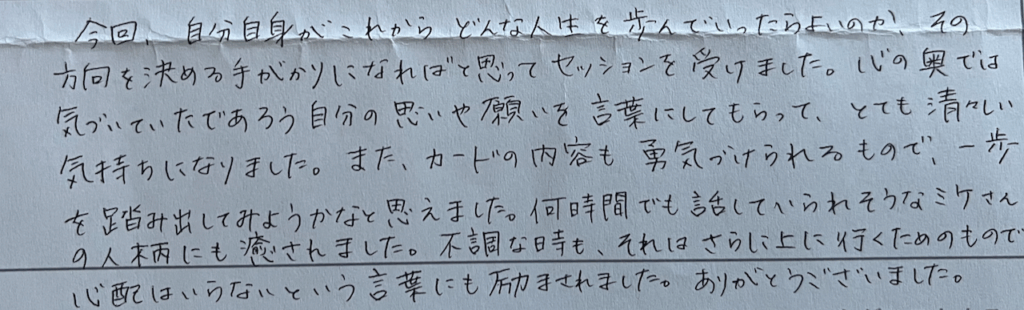 今回、自分自身がこれからどんな人生を歩んでいったらよいのか、その
方向を決める手がかりになればと思ってセッションを受けました。心の奥では
気づいていたであろう自分の思いや願いを言葉にしてもらって、とても清々しい
気持ちになりました。また、カードの内容も勇気づけられるもので、一歩
を踏み出してみようかなと思えました。何時間でも話していられそうなミケさん
の人柄にも癒されました。不調な時も、それはさらに上に行くためのもので
心配はいらないという言葉にも励まされました。ありがとうございました。